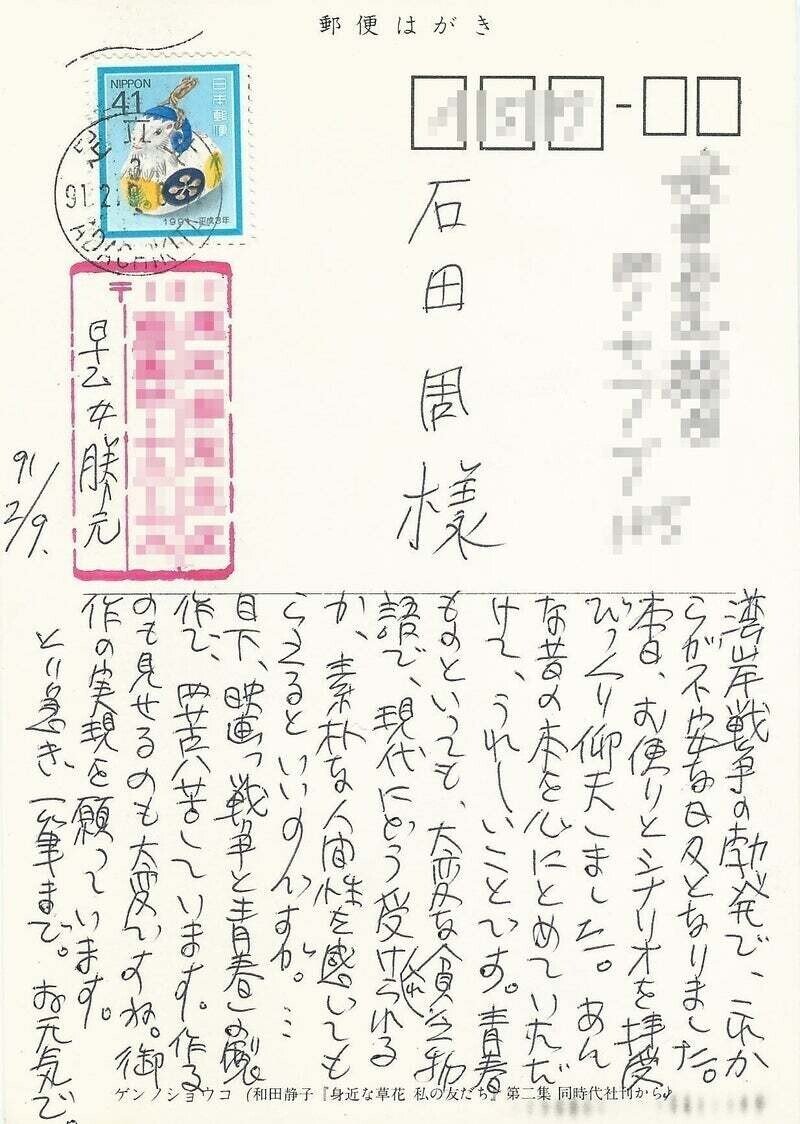 郵便はがき
NIPPON
41
日本郵便
1991-平成3年
91.2.
ADACHIKITA
石田周様
早乙女勝元
91
2/9.
湾岸戦争の勃発で、これか
らが不安な日々となりました。
本日、お便りとシナリオを拝受
びっくり仰天しました。あん
な昔の本を心にとめていただ
けて、うれしいことです。青春
ものといっても、大変な貧乏物
語で、現代にどう受けとられる
か、素朴な人間性を感じても
らえるといいのですが。…
目下、映画「戦争と青春」の製
作で、四苦八苦しています。作る
のも見せるのも大変ですね。御
作の実現を願っています。
とり急ぎ、一筆まで。お元気で。
ゲンノショウコ (和田静子『身近な草花 私の友だち』第二集 同時代社刊から)